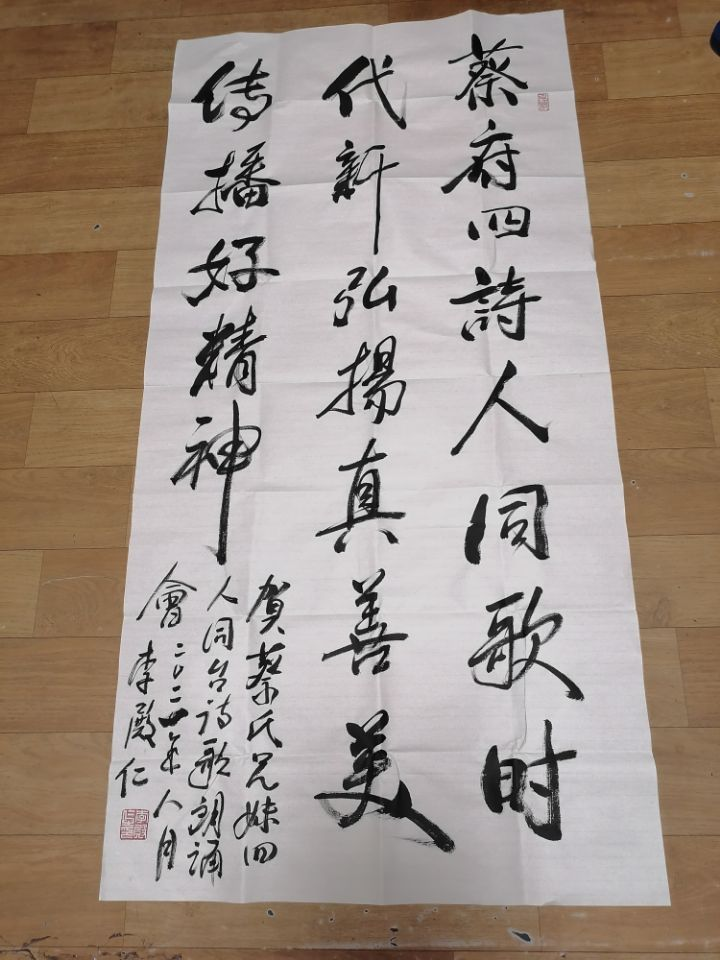 蔡府四詩人同歌时
代新弘揚真善美
傳播好精神
贺蔡氏兄妹四
人同台诗歌朗誦
會二〇二四年八月
李殿仁